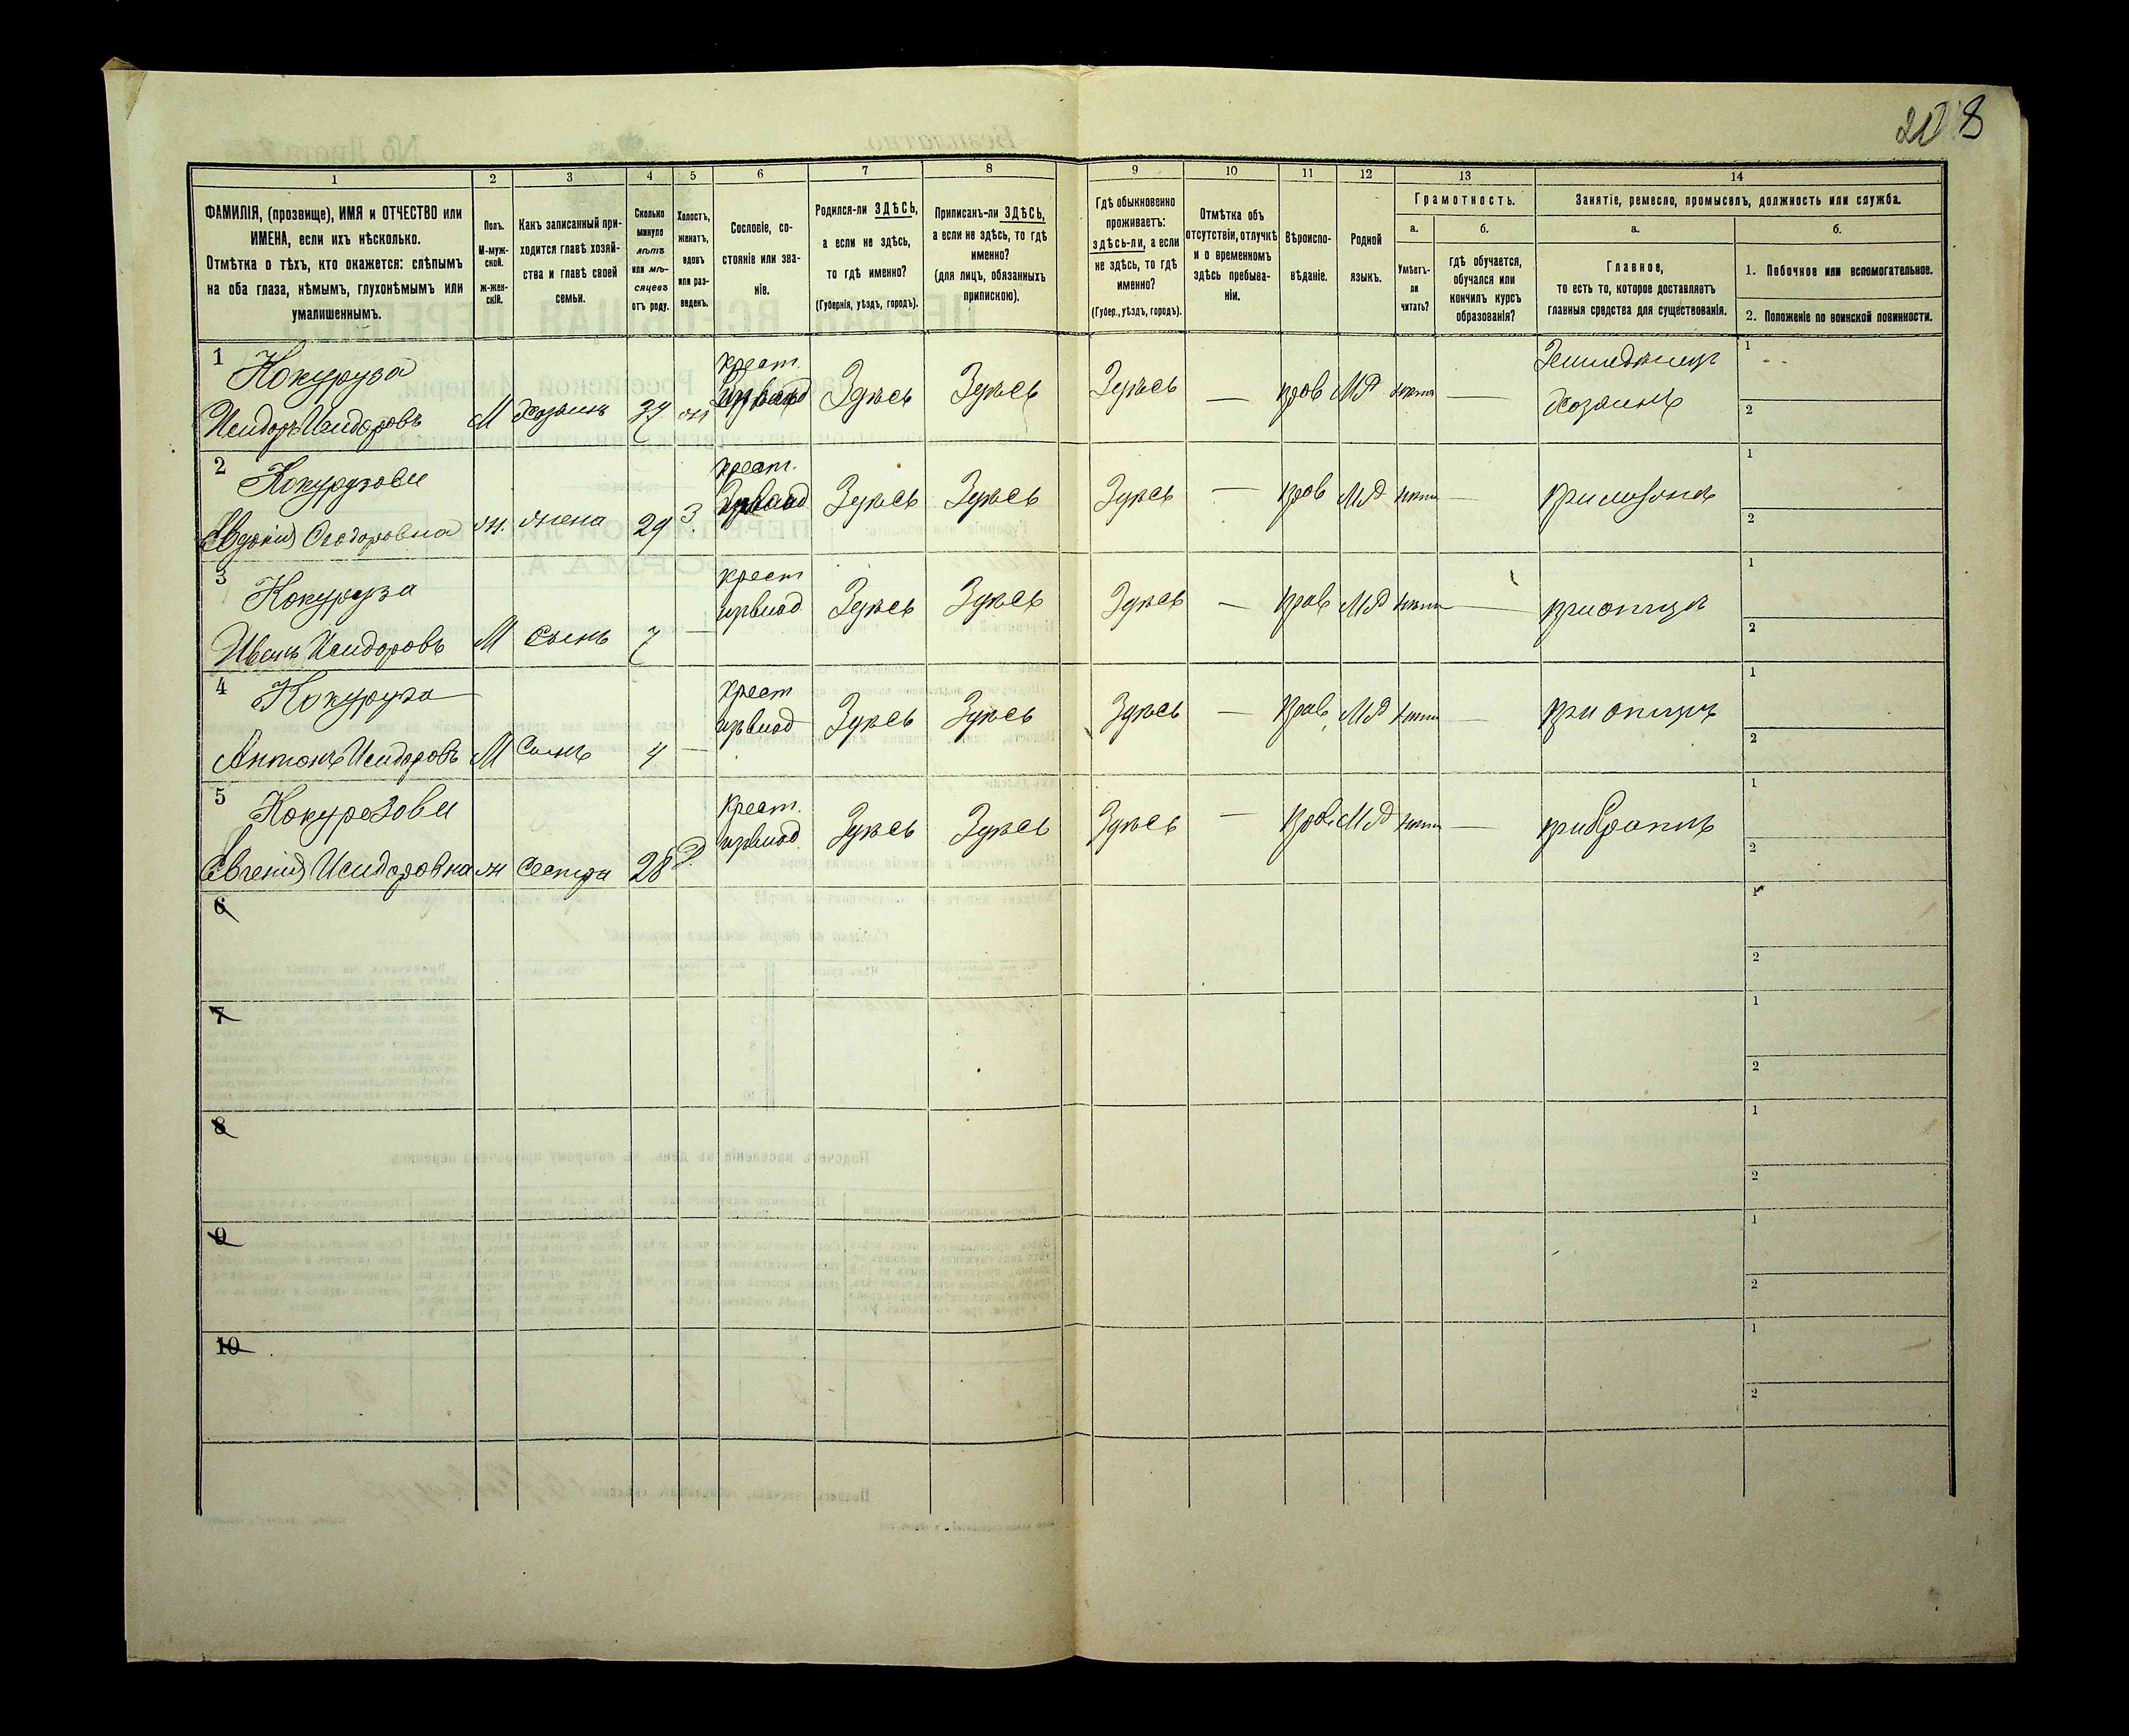 208
1
2
3
4
5
6
7
8
9
10
11
12
13
14
ФАМИЛІЯ, (прозвище), ИМЯ и ОТЧЕСТВО или
ИМЕНА, если ихъ нѣсколько.
Отмѣтка о тѣхъ, кто окажется: слѣпымъ
на оба глаза, нѣмымъ, глухонѣмымъ или
умалишеннымъ.
Полъ.
М-муж-
ской.
Ж-жен-
скій.
Какъ записанный при-
ходится главѣ хозяй-
ства и главѣ своей
семьи.
Сколько
минуло
лѣтъ
или мѣ-
сяцевъ
отъ роду.
Холостъ,
женатъ,
вдовъ
или раз-
веденъ.
Сословіе, со-
стояніе или зва-
ніе.
Родился-ли ЗДѢСЬ,
а если не здѣсь,
то гдѣ именно?
(Губернія, уѣздъ, городъ).
Приписанъ-ли ЗДѢСЬ,
а если не здѣсь, то гдѣ
именно?
(для лицъ, обязанныхъ
припискою).
Гдѣ обыкновенно
проживаетъ:
здѣсь-ли, а если
не здѣсь, то гдѣ
именно?
(Губер., уѣздъ, городъ).
Отмѣтка объ
отсутствіи, отлучкѣ
и о временномъ
здѣсь пребыва-
ніи.
Вѣроиспо-
вѣданіе.
Родной
языкъ.
Грамотность.
а.
Умѣетъ-
ли
читать?
б.
гдѣ обучается,
обучался или
кончилъ курсъ
образованія?
Занятіе, ремесло, промыселъ, должность или служба.
а.
Главное,
то есть то, которое доставляетъ
главныя средства для существованія.
б.
1. Побочное или вспомогательное.
2. Положеніе по воинской повинности.
1 Кокуруза крест. Земледѣлецъ 1
Исидоръ Исидоровъ М Хозяинъ 37 ж Здѣсь Здѣсь Здѣсь — прав МР нѣтъ — Хозяинъ 2
2 Кокурузови крест. 1
Евдокия Ѳеодоровна ж. жена 29 З. Здѣсь Здѣсь Здѣсь — прав МР нѣтъ — 2
3 Кокуруза крест 1
Иванъ Исидоровъ М Сынъ 7 — Здѣсь Здѣсь Здѣсь — прав МР нѣтъ — при отцѣ 2
4 Кокуруза крест 1
Антонъ Исидоровъ М Сынъ 4 — Здѣсь Здѣсь Здѣсь — прав МР нѣтъ — при отцѣ 2
5 Кокурезови Крест. 1
Евгения Исидоровна ж Сестра 28 Здѣсь Здѣсь Здѣсь — прав МР нѣтъ — при братѣ 2
6 1
2
7 1
2
8 1
2
9 1
2
10 1
2